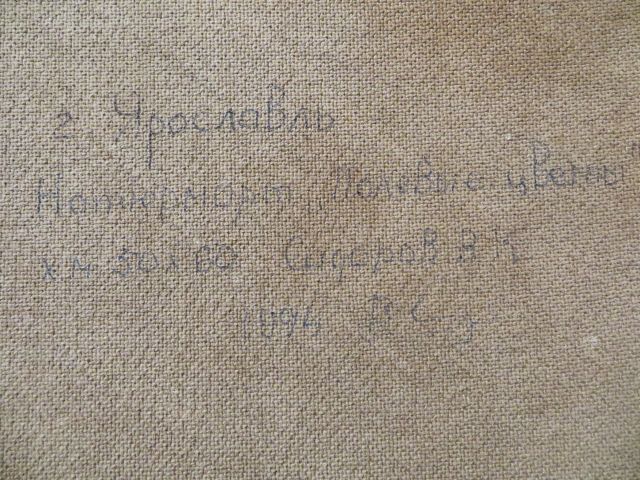 г. Ярославль
Натюрморт "Полевые цветы"
х м 50х60 Сидоров В К
1994